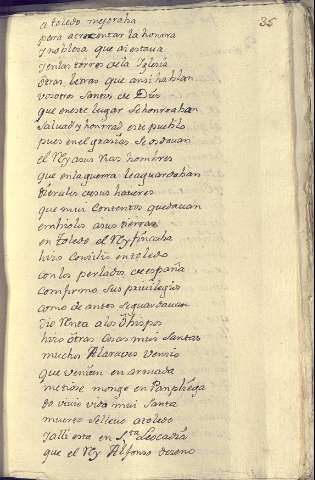 35
a toledo mejoraba
para acrecentar la honrra
y nobleza que ai estava
y en las torres de la Iglesia
otras letras que ansi hablan
vosotros santos de Dios
que en este lugar se honrraban
salvad y honrrad este pueblo
pues en el gracias se os davan
el Rey a sus Ricos hombres
que en la guerra le aguardaban
dierales de sus haveres
que mui contentos quedavan
embiolos a sus tierras
en toledo el Rey fincaba
hizo Consilio en toledo
con los perlados de españa
confirmo sus privilegios
como de antes se guardavan
dio Renta a los obispos
hizo otras cosas mui santas
muchos Alaraves vencio
que venian en armada
metiose monge en Panpliega
do vivio vida mui santa
muerto se llevo a toledo
y alli esta en Sta Leocadia
que el Rey Alfonso dezeno